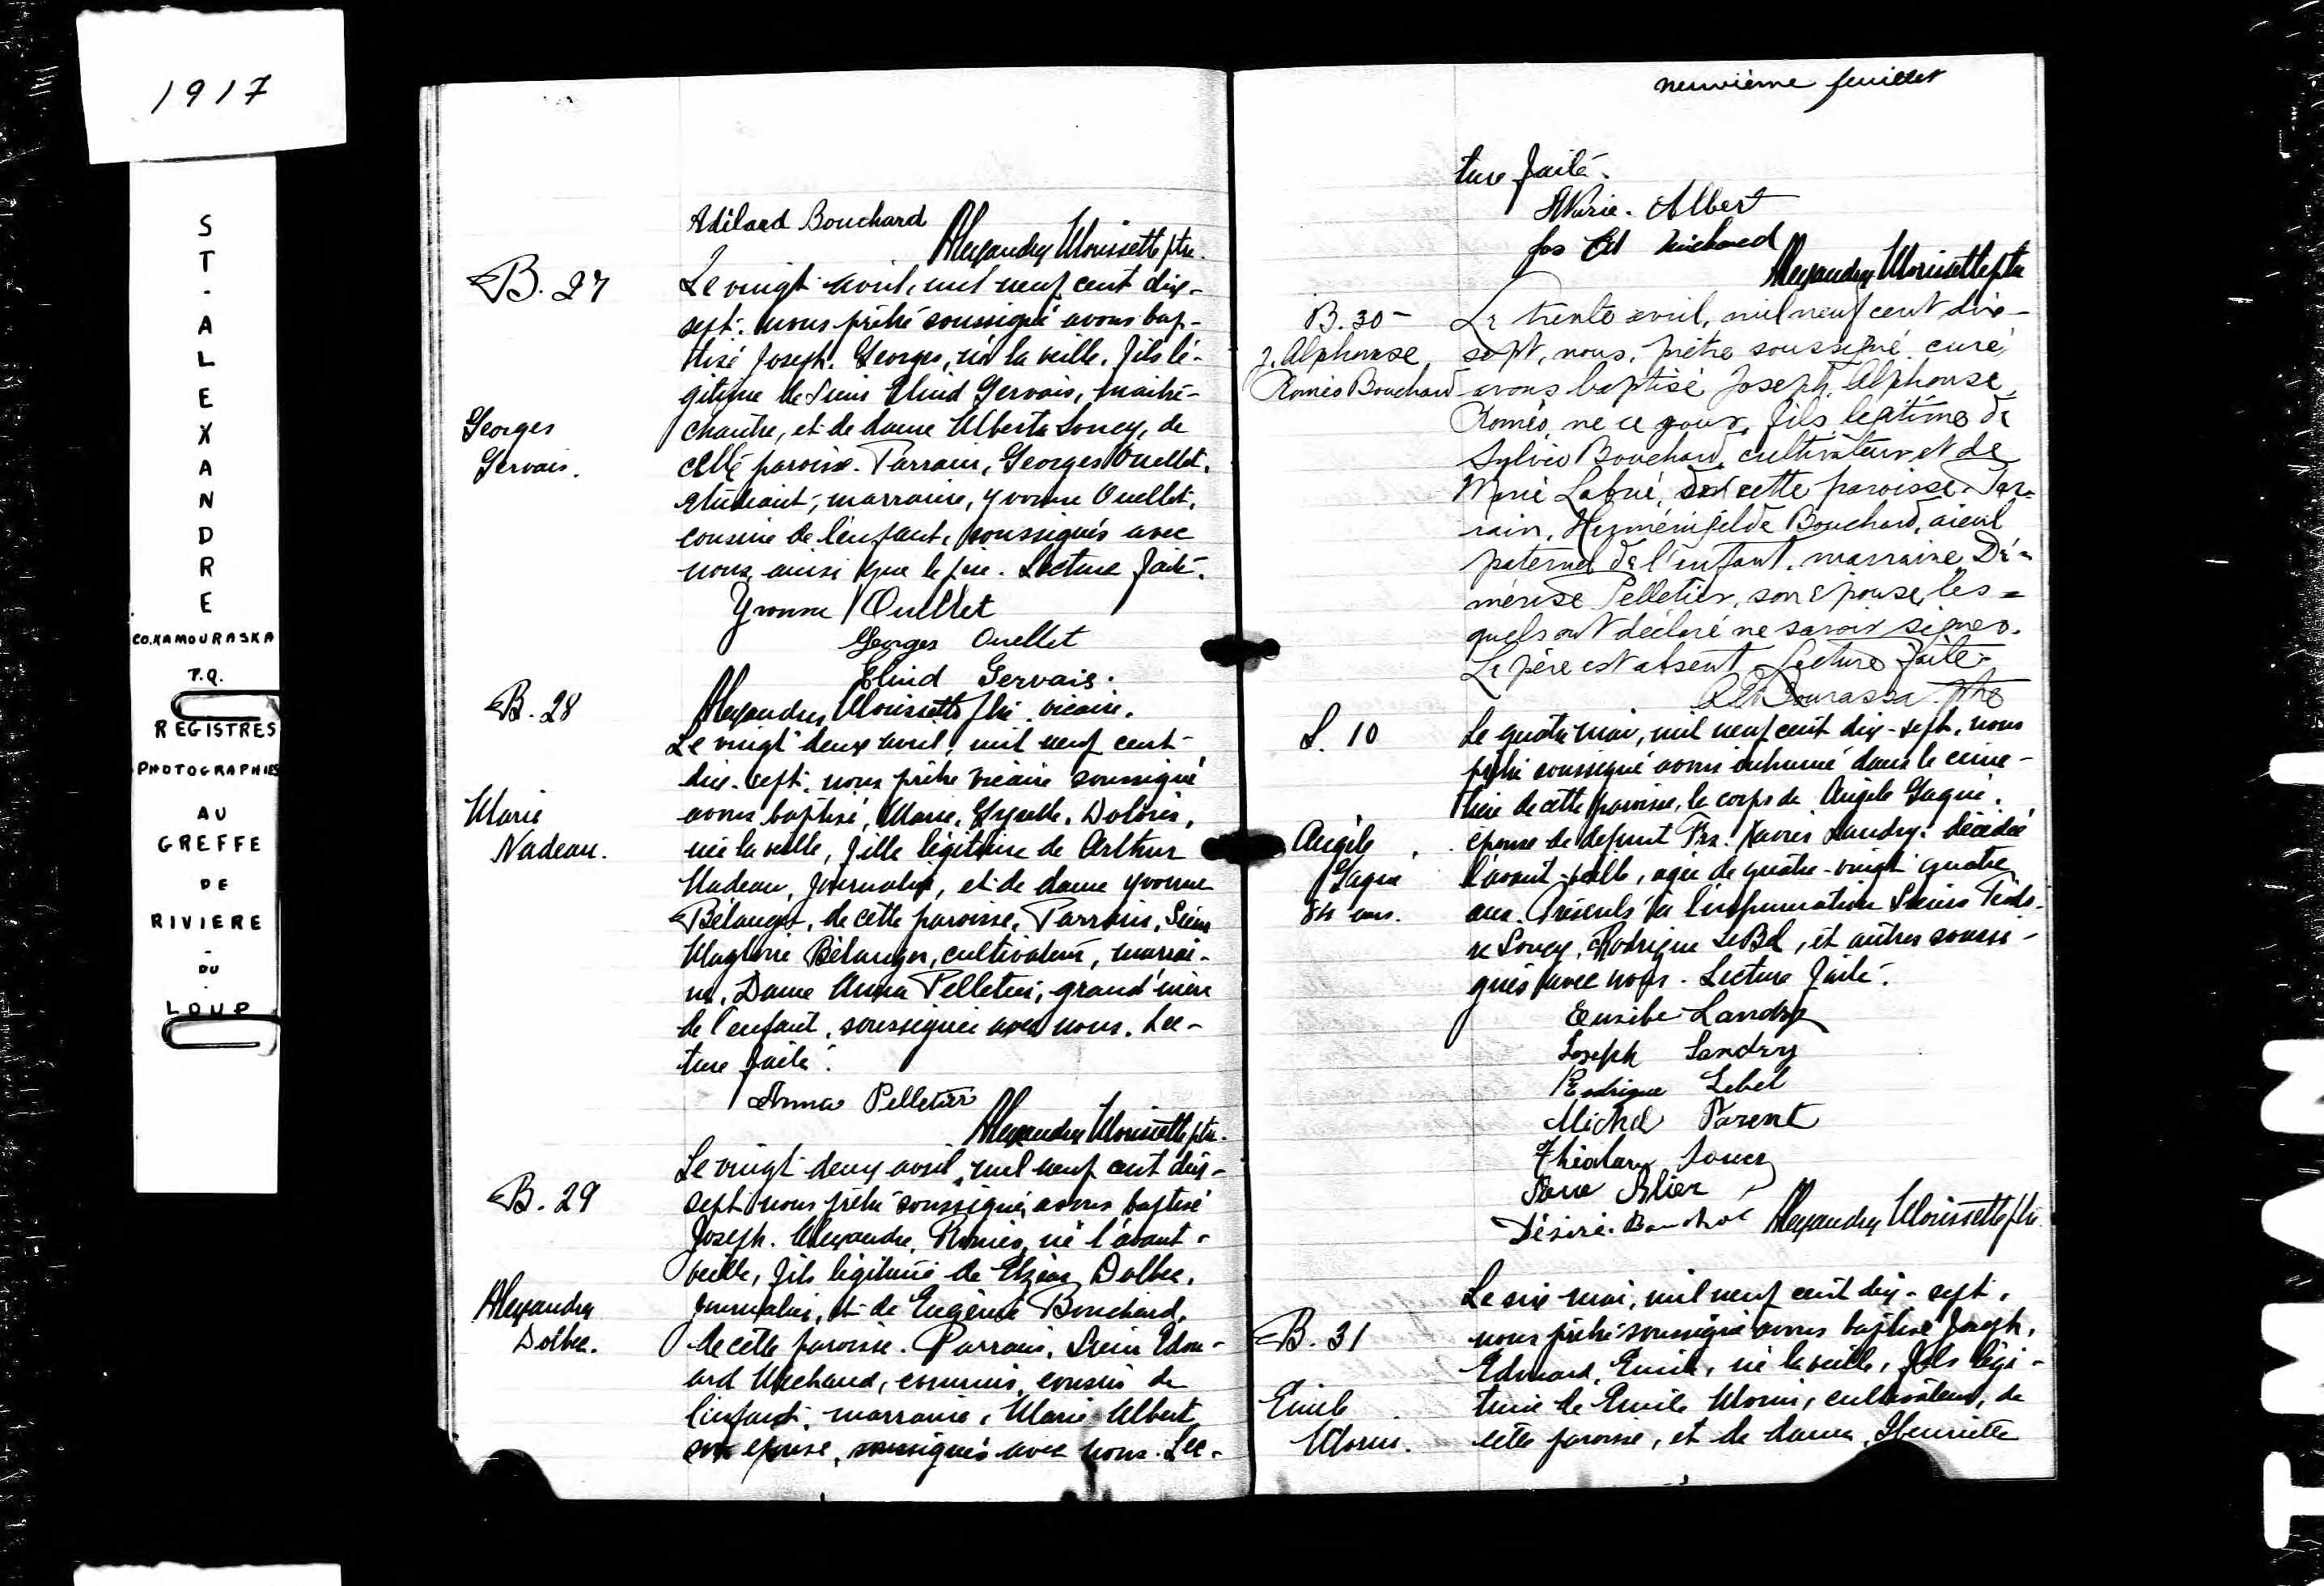 1917
ST-ALEXANDRE
CO. KAMOURASKA
P.Q.
REGISTRES
PHOTOGRAPHIES
AU
GREFFE
DE
RIVIERE
-
DU
-
LOUP
Adélard Bouchard
Alexandre Morissette ptre.
B. 27
Georges
Gervais.
Le vingt avril, mil neuf cent dix-
sept, nous prêtre soussigné avons bap-
tisé Joseph, Georges, né la veille, fils lé-
gitime de Sieur Eliud Gervais, maître-
chantre, et de dame Alberta Soucy, de
cette paroisse. Parrain, Georges Ouellet,
étudiant, marraine, Yvonne Ouellet,
cousine de l'enfant, soussignés avec
nous, ainsi que le père. Lecture faite.
Yvonne Ouellet
Georges Ouellet
Eliud Gervais.
Alexandre Morissette ptre. vicaire.
B. 28
Marie
Nadeau.
Le vingt deux avril, mil neuf cent
dix-sept, nous prêtre vicaire soussigné
avons baptisé, Marie, Dolorès,
née la veille, fille légitime de Arthur
Nadeau, journalier, et de dame Yvonne
Bélanger, de cette paroisse, Parrain, Sieur
Magloire Bélanger, cultivateur, marrai-
ne, Dame Anna Pelletier, grand'mère
de l'enfant, soussignée avec nous. Lec-
ture faite.
Anna Pelletier
Alexandre Morissette ptre.
B. 29
Alexandre
Dolbec.
Le vingt deux avril, mil neuf cent dix-
sept nous prêtre soussigné, avons baptisé
Joseph, Alexandre, Roméo, né l'avant-
veille, fils légitime de Elzéar Dolbec,
journalier, et de Eugénie Bouchard,
de cette paroisse. Parrain, Sieur Edou-
ard Michaud, commis, cousin de
l'enfant, marraine, Marie Albert
son épouse, soussignés avec nous. Lec-
neuvième feuillet
ture faite.
Marie. Albert
Jos Ed Michaud
Alexandre Morissette ptre
B. 30 -
J. Alphonse
Roméo Bouchard
Le trente avril, mil neuf cent dix-
sept, nous, prêtre soussigné, curé,
avons baptisé Joseph, Alphonse,
Roméo, né ce jour, fils légitime de
Sylvio Bouchard, cultivateur et de
Marie Labrie, de cette paroisse. Par-
rain, Herménigilde Bouchard, aieul
paternel de l'enfant, marraine Dé-
mérise Pelletier, son épouse, les-
quels ont déclaré ne savoir signer.
Le père est absent. Lecture faite.
Bourassa ptre
S. 10
Angèle
Gagné
84 ans.
Le quatre mai, mil neuf cent dix-sept, nous
prêtre soussigné avons inhumé dans le cime-
tière de cette paroisse, le corps de Angèle Gagné,
épouse de défunt Frs. Xavier Landry, décédée
l'avant-veille, agée de quatre-vingt quatre
ans. Présents à l'inhumation Sieurs Théodo-
re Soucy, Rodrigue LeBel, et autres soussi-
gnés avec nous. Lecture faite.
Eusèbe Landry
Joseph Landry
Rodrigue Lebel
Michel Parent
Théodore Soucy
Blier
Désiré Bouchard
Alexandre Morissette ptre
B. 31
Emile
Morin.
Le six mai, mil neuf cent dix-sept,
nous prêtre soussigné avons baptisé Joseph,
Edouard, Emile, né la veille, fils légi-
time de Emile Morin, cultivateur, de
cette paroisse, et de dame, Henriette